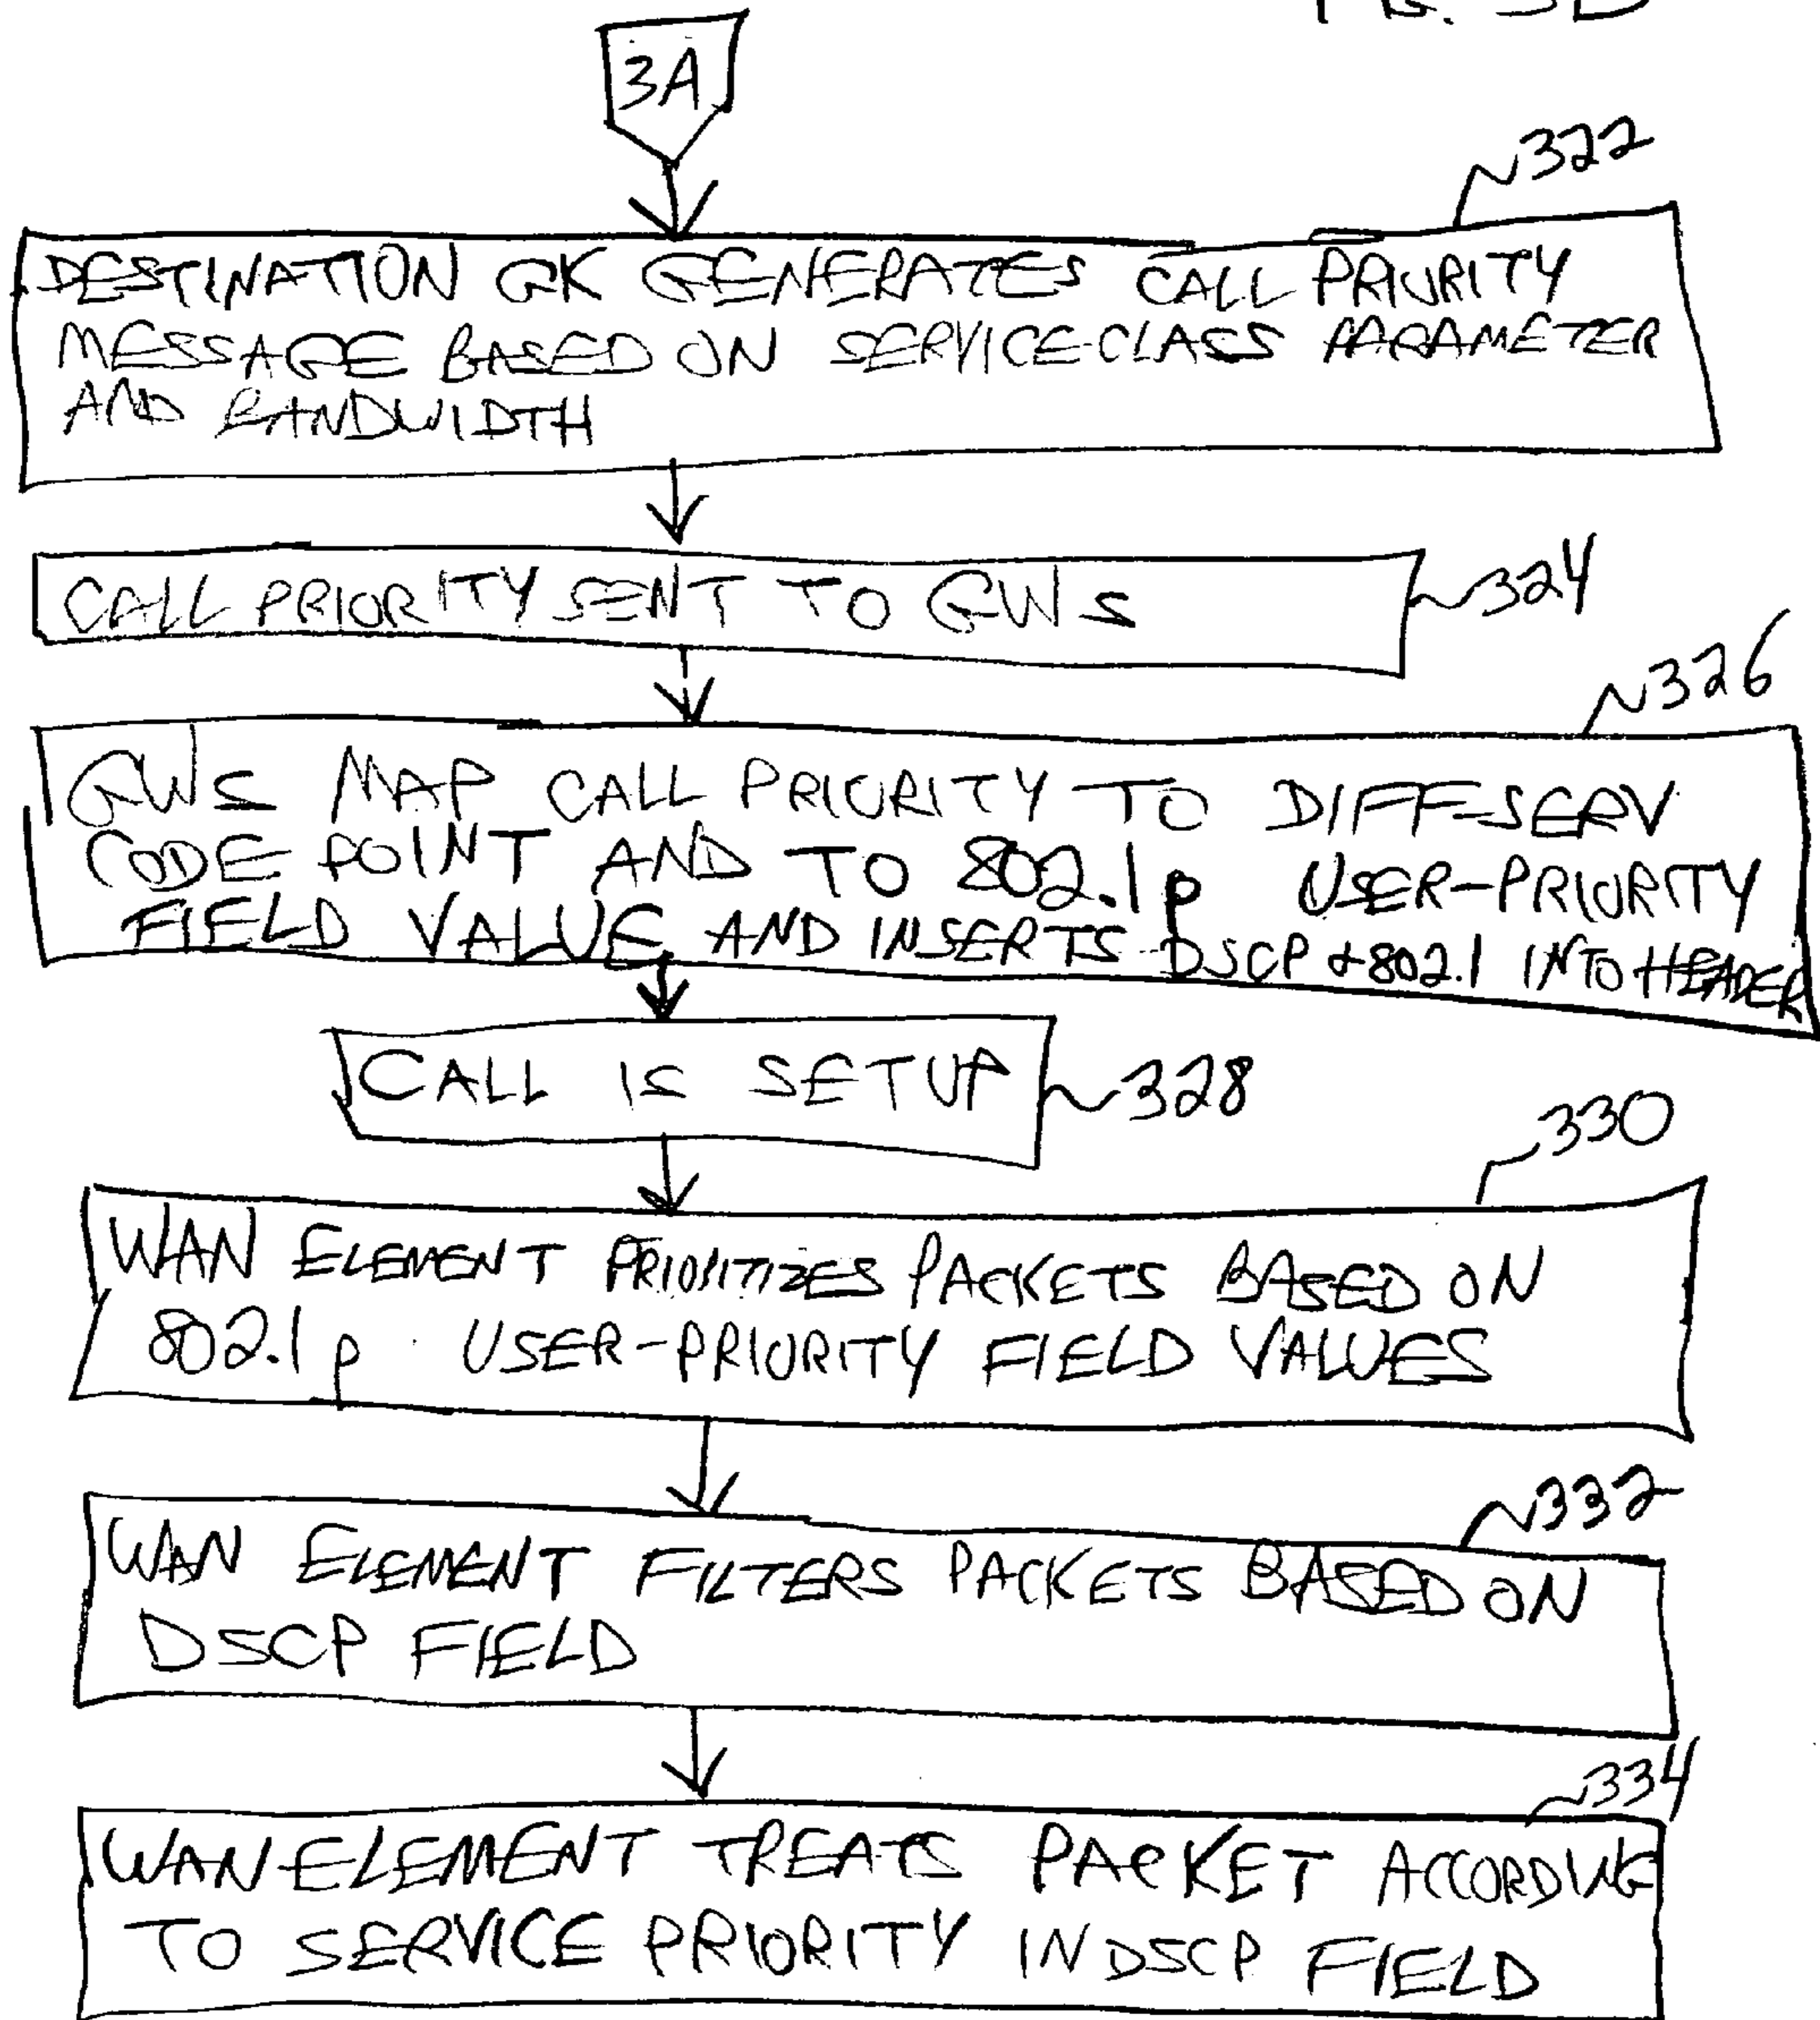 3A
322
DESTINATION GK GENERATES CALL PRIORITY
MESSAGE BASED ON SERVICE-CLASS PARAMETER
AND BANDWIDTH
CALL PRIORITY SENT TO GWS
324
326
GWS MAP CALL PRIORITY TO DIFF-SERV
CODE POINT AND TO 802.1p USER-PRIORITY
FIELD VALUE AND INSERTS DSCP & 802.1 INTO HEADER
CALL IS SETUP
328
330
WAN ELEMENT PRIORITIZES PACKETS BASED ON
802.1p USER-PRIORITY FIELD VALUES
332
WAN ELEMENT FILTERS PACKETS BASED ON
DSCP FIELD
334
WAN ELEMENT TREATS PACKET ACCORDING
TO SERVICE PRIORITY IN DSCP FIELD